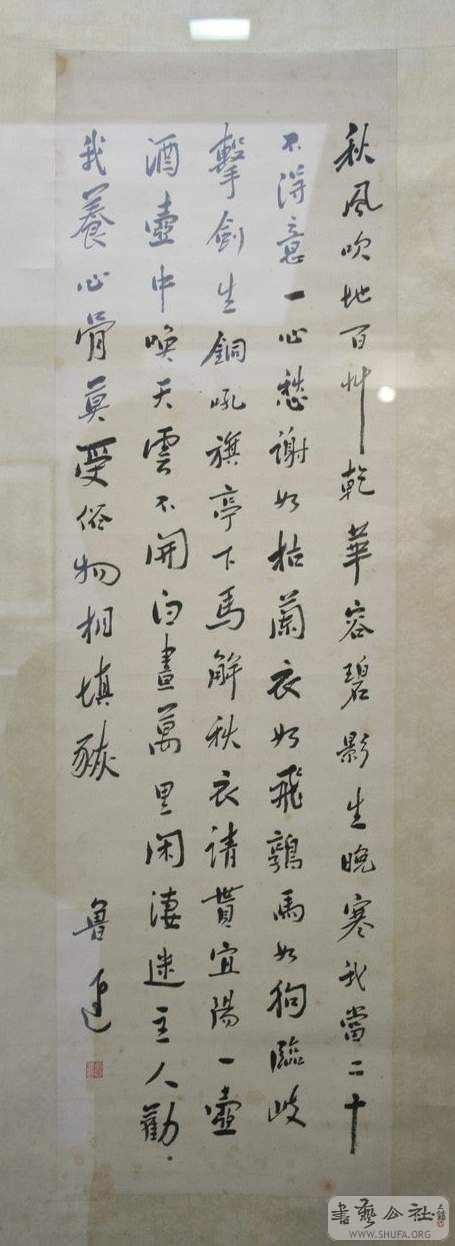 秋風吹地百艸乾華容碧影生晚寒我當二十
不得意一心愁謝如枯蘭衣如飛鶉馬如狗臨岐
擊劍生銅吼旗亭下馬解秋衣請貰宜陽一壺
酒壺中喚天雲不開白晝萬里閑淒迷主人勸
我養心骨莫受俗物相填豗
魯迅
書藝公社
WWW.SHUFA.ORG